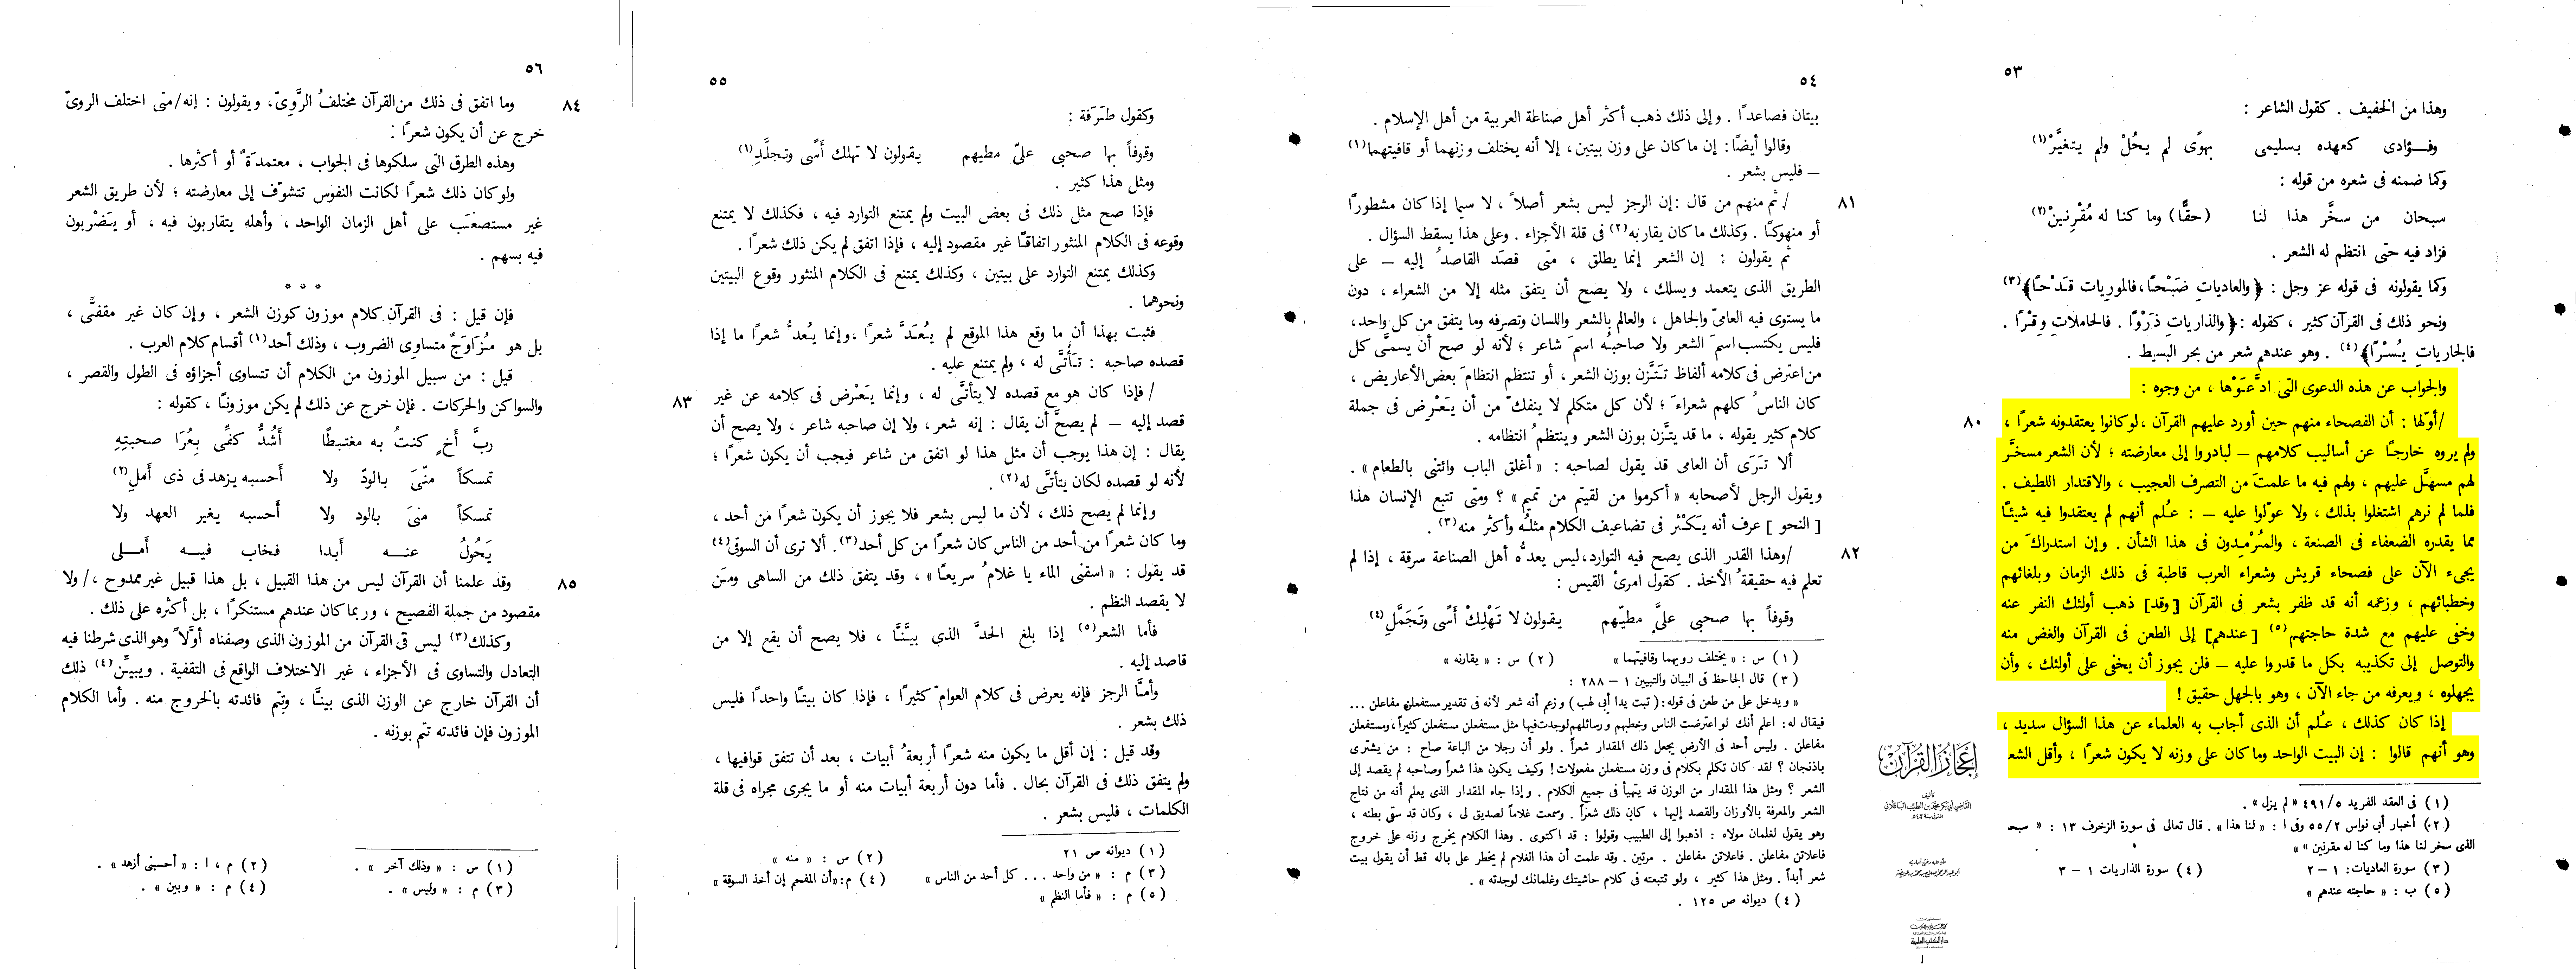 ٥٣
وهذا من الخفيف . كقول الشاعر :
وفــؤادى كعهده بسليمى بهوًى لم يحُلْ ولم يتغيَّرْ(١)
وكما ضمنه فى شعره من قوله :
سبحان من سخَّر هذا لنا (حقًّا) وما كنا له مُقْرِنينْ(٢)
فزاد فيه حتّى انتظم له الشعر .
وكما يقولونه فى قوله عز وجل : ﴿والعاديات ضَبْحًا، فالموريات قَدْحًا﴾(٣)
ونحو ذلك فى القرآن كثير ، كقوله : ﴿والذاريات ذَرْوًا . فالحاملات وِقْرًا .
فالجاريات يُسْرًا﴾(٤) . وهو عندهم شعر من بحر البسيط .
والجواب عن هذه الدعوى التّى ادَّعَوْها ، من وجوه :
٨٠ /أوّلها : أن الفصحاء منهم حين أورد عليهم القرآن ، لو كانوا يعتقدونه شعرًا ،
ولم يروه خارجًا عن أساليب كلامهم – لبادروا إلى معارضته ؛ لأن الشعر مسخَّر
لهم مسهَّل عليهم ، ولهم فيه ما علمتَ من التصرف العجيب ، والاقتدار اللطيف .
فلما لم نرهم اشتغلوا بذلك ، ولا عوّلوا عليه – : عُلم أنهم لم يعتقدوا فيه شيئًا
مما يقدره الضعفاء فى الصنعة ، والمُرْمِدون فى هذا الشأن . وإن استدراكَ من
يجىء الآن على فصحاء قريش وشعراء العرب قاطبة فى ذلك الزمان وبلغائهم
وخطبائهم ، وزعمه أنه قد ظفر بشعر فى القرآن [وقد] ذهب أولئك النفر عنه
وخفى عليهم مع شدة حاجتهم(٥) [عندهم] إلى الطعن فى القرآن والغض منه
والتوصل إلى تكذيبه بكل ما قدروا عليه – فلن يجوز أن يخفى على أولئك ، وأن
يجهلوه ، ويعرفه من جاء الآن ، وهو بالجهل حقيق !
إذا كان كذلك ، عُلم أن الذى أجاب به العلماء عن هذا السؤال سديد ،
وهو أنهم قالوا : إن البيت الواحد وما كان على وزنه لا يكون شعرًا ، وأقل الشعر
(١) فى العقد الفريد ٤٩١/٥ « لم يزل » .
(٢) أخبار أبى نواس ٥٥/٢ وفى ا : « لنا هذا » . قال تعالى فى سورة الزخرف ١٣ : « سبحـ
الذى سخر لنا هذا وما كنا له مقرنين »
(٣) سورة العاديات: ١ – ٢ (٤) سورة الذاريات ١ – ٣
(٥) ب : « حاجته عندهم »
إعجاز القرآن
تأليف
٥٤
بيتان فصاعدًا . وإلى ذلك ذهب أكثر أهل صناعة العربية من أهل الإسلام .
وقالوا أيضًا: إن ما كان على وزن بيتين ، إلا أنه يختلف وزنهما أو قافيتهما(١)
– فليس بشعر .
٨١ / ثم منهم من قال : إن الرجز ليس بشعر أصلاً ، لا سيما إذا كان مشطورًا
أو منهوكًا . وكذلك ما كان يقاربه(٢) فى قلة الأجزاء . وعلى هذا يسقط السؤال .
ثم يقولون : إن الشعر إنما يطلق ، متّى قصَد القاصدُ إليه – على
الطريق الذى يتعمد ويسلك ، ولا يصح أن يتفق مثله إلا من الشعراء ، دون
ما يستوى فيه العامىّ والجاهل ، والعالم بالشعر واللسان وتصرفه وما يتفق من كل واحد ،
فليس يكتسب اسمَ الشعر ولا صاحبُه اسمَ شاعر ؛ لأنه لو صح أن يسمَّى كل
من اعترض فى كلامه ألفاظ تَتَّزن بوزن الشعر ، أو تنتظم انتظامَ بعض الأعاريض ،
كان الناسُ كلهم شعراءَ ؛ لأن كل متكلم لا ينفكّ من أن يَعْرِض فى جملة
كلام كثير يقوله ، ما قد يتّزن بوزن الشعر وينتظمُ انتظامه .
ألا تَرَى أن العامى قد يقول لصاحبه : « أغلق الباب وائتنى بالطعام » .
ويقول الرجل لأصحابه « أكرموا من لقيتم من تميم » ؟ ومتّى تتبع الإنسان هذا
[ النحو ] عرف أنه يَكْثر فى تضاعيف الكلام مثلُه وأكثر منه(٣) .
٨٢ /وهذا القدر الذى يصح فيه التوارد، ليس يعدُّه أهل الصناعة سرقة ، إذا لم
تعلم فيه حقيقةُ الأخذ . كقول امرئ القيس :
وقوفاً بها صحبى علىَّ مطيّهم يقولون لا تَهْلِكْ أسًى وتَجَمَّلِ(٤)
(١) س : « يختلف رويهما وقافيتهما » (٢) س : « يقارنه »
(٣) قال الجاحظ فى البيان والتبيين ١ – ٢٨٨ :
« ويدخل على من طعن فى قوله: ( تبت يدا أبى لهب ) وزعم أنه شعر لأنه فى تقدير مستفعلن مفاعلن ...
فيقال له: اعلم أنك لو اعترضت الناس وخطبهم ورسائلهم لوجدت فيها مثل مستفعلن مستفعلن كثيراً ، ومستفعلن
مفاعلن . وليس أحد فى الأرض يجعل ذلك المقدار شعراً . ولو أن رجلا من الباعة صاح : من يشترى
باذنجان ؟ لقد كان تكلم بكلام فى وزن مستفعلن مفعولات ! وكيف يكون هذا شعراً وصاحبه لم يقصد إلى
الشعر ؟ ومثل هذا المقدار من الوزن قد يتهيأ فى جميع الكلام . وإذا جاء المقدار الذى يعلم أنه من نتاج
الشعر والمعرفة بالأوزان والقصد إليها ، كان ذلك شعراً . وسمعت غلاماً لصديق لى ، وكان قد سقى بطنه ،
وهو يقول لغلمان مولاه : اذهبوا إلى الطبيب وقولوا : قد اكتوى . وهذا الكلام يخرج وزنه على خروج
فاعلاتن مفاعلن . فاعلاتن مفاعلن . مرتين . وقد علمت أن هذا الغلام لم يخطر على باله قط أن يقول بيت
شعر أبداً . ومثل هذا كثير ، ولو تتبعته فى كلام حاشيتك وغلمانك لوجدته » .
(٤) ديوانه ص ١٢٥ .
٥٥
وكقول طَرَفة :
وقوفاً بها صحبى علىّ مطيهم يقولون لا تهلك أَسًى وتجلَّدِ(١)
ومثل هذا كثير .
فإذا صح مثل ذلك فى بعض البيت ولم يمتنع التوارد فيه ، فكذلك لا يمتنع
وقوعه فى الكلام المنثور اتفاقًا غير مقصود إليه ، فإذا اتفق لم يكن ذلك شعرًا .
وكذلك يمتنع التوارد على بيتين ، وكذلك يمتنع فى الكلام المنثور وقوع البيتين
ونحوهما .
فثبت بهذا أن ما وقع هذا الموقع لم يُعَدَّ شعرًا ، وإنما يُعدُّ شعرًا ما إذا
قصده صاحبه : تَأَتَّى له ، ولم يمتنع عليه .
٨٣ / فإذا كان هو مع قصده لا يتأتَّى له ، وإنما يَعْرض فى كلامه عن غير
قصد إليه – لم يصحَّ أن يقال : إنه شعر، ولا إن صاحبه شاعر ، ولا يصح أن
يقال : إن هذا يوجب أن مثل هذا لو اتفق من شاعر فيجب أن يكون شعرًا ؛
لأنه لو قصده لكان يتأتَّى له(٢) .
وإنما لم يصح ذلك ، لأن ما ليس بشعر فلا يجوز أن يكون شعرًا من أحد ،
وما كان شعرًا من أحد من الناس كان شعرًا من كل أحد(٣) . ألا ترى أن السوقى(٤)
قد يقول : « اسقنى الماء يا غلامُ سريعًا » ، وقد يتفق ذلك من الساهى ومَن
لا يقصد النظم .
فأما الشعر(٥) إذا بلغ الحدَّ الذى بيَّنَّا ، فلا يصح أن يقع إلا من
قاصد إليه .
وأمَّا الرجز فإنه يعرض فى كلام العوامّ كثيرًا ، فإذا كان بيتًا واحدًا فليس
ذلك بشعر .
وقد قيل : إن أقل ما يكون منه شعرًا أربعةُ أبيات ، بعد أن تتفق قوافيها ،
ولم يتفق ذلك فى القرآن بحال . فأما دون أربعة أبيات منه أو ما يجرى مجراه فى قلة
الكلمات ، فليس بشعر .
(١) ديوانه ص ٢١ (٢) س : « منه »
(٣) م : « من واحد . . . كل أحد من الناس » (٤) م : «أن المفحم إن أخذ السوقة »
(٥) م : « فأما النظم »
٥٦
٨٤ وما اتفق فى ذلك من القرآن مختلفُ الرَّوِىّ، ويقولون : إنه/متّى اختلف الروىّ
خرج عن أن يكون شعرًا .
وهذه الطرق التّى سلكوها فى الجواب ، معتمدَةٌ أو أكثرها .
ولو كان ذلك شعرًا لكانت النفوس تتشوّف إلى معارضته ؛ لأن طريق الشعر
غير مستصعَب على أهل الزمان الواحد ، وأهله يتقاربون فيه ، أو يَضْربون
فيه بسهم .
° ° °
فإن قيل : فى القرآن كلام موزون كوزن الشعر ، وإن كان غير مقفًّى ،
بل هو مُزَاوَجٌ متساوِى الضروب ، وذلك أحد(١) أقسام كلام العرب .
قيل : من سبيل الموزون من الكلام أن تتساوى أجزاؤه فى الطول والقصر ،
والسواكن والحركات . فإن خرج عن ذلك لم يكن موزونًا ، كقوله :
ربَّ أَخٍ كنتُ به مغتبطًا أَشُدُّ كفِّى بِعُرَا صحبتِهِ
تمسكاً منّىَ بالودّ ولا أَحسبه يزهد فى ذى أَملِ(٢)
تمسكاً منىَ بالود ولا أَحسبه يغير العهد ولا
يَحُولُ عنــه أَبدا فخاب فيــه أَمــلى
٨٥ وقد علمنا أن القرآن ليس من هذا القبيل ، بل هذا قبيل غير ممدوح ،/ ولا
مقصود من جملة الفصيح ، وربما كان عندهم مستنكرًا ، بل أكثره على ذلك .
وكذلك(٣) ليس فى القرآن من الموزون الذى وصفناه أوَّلاً وهو الذى شرطنا فيه
التعادل والتساوى فى الأجزاء ، غير الاختلاف الواقع فى التقفية . ويبيِّن(٤) ذلك
أن القرآن خارج عن الوزن الذى بينَّا ، وتتم فائدته بالخروج منه . وأما الكلام
الموزون فإن فائدته تتم بوزنه .
(١) س : « وذلك آخر » . (٢) م ، ا : « أحسبنى أزهد » .
(٣) م : « وليس » . (٤) م : « وبين » .